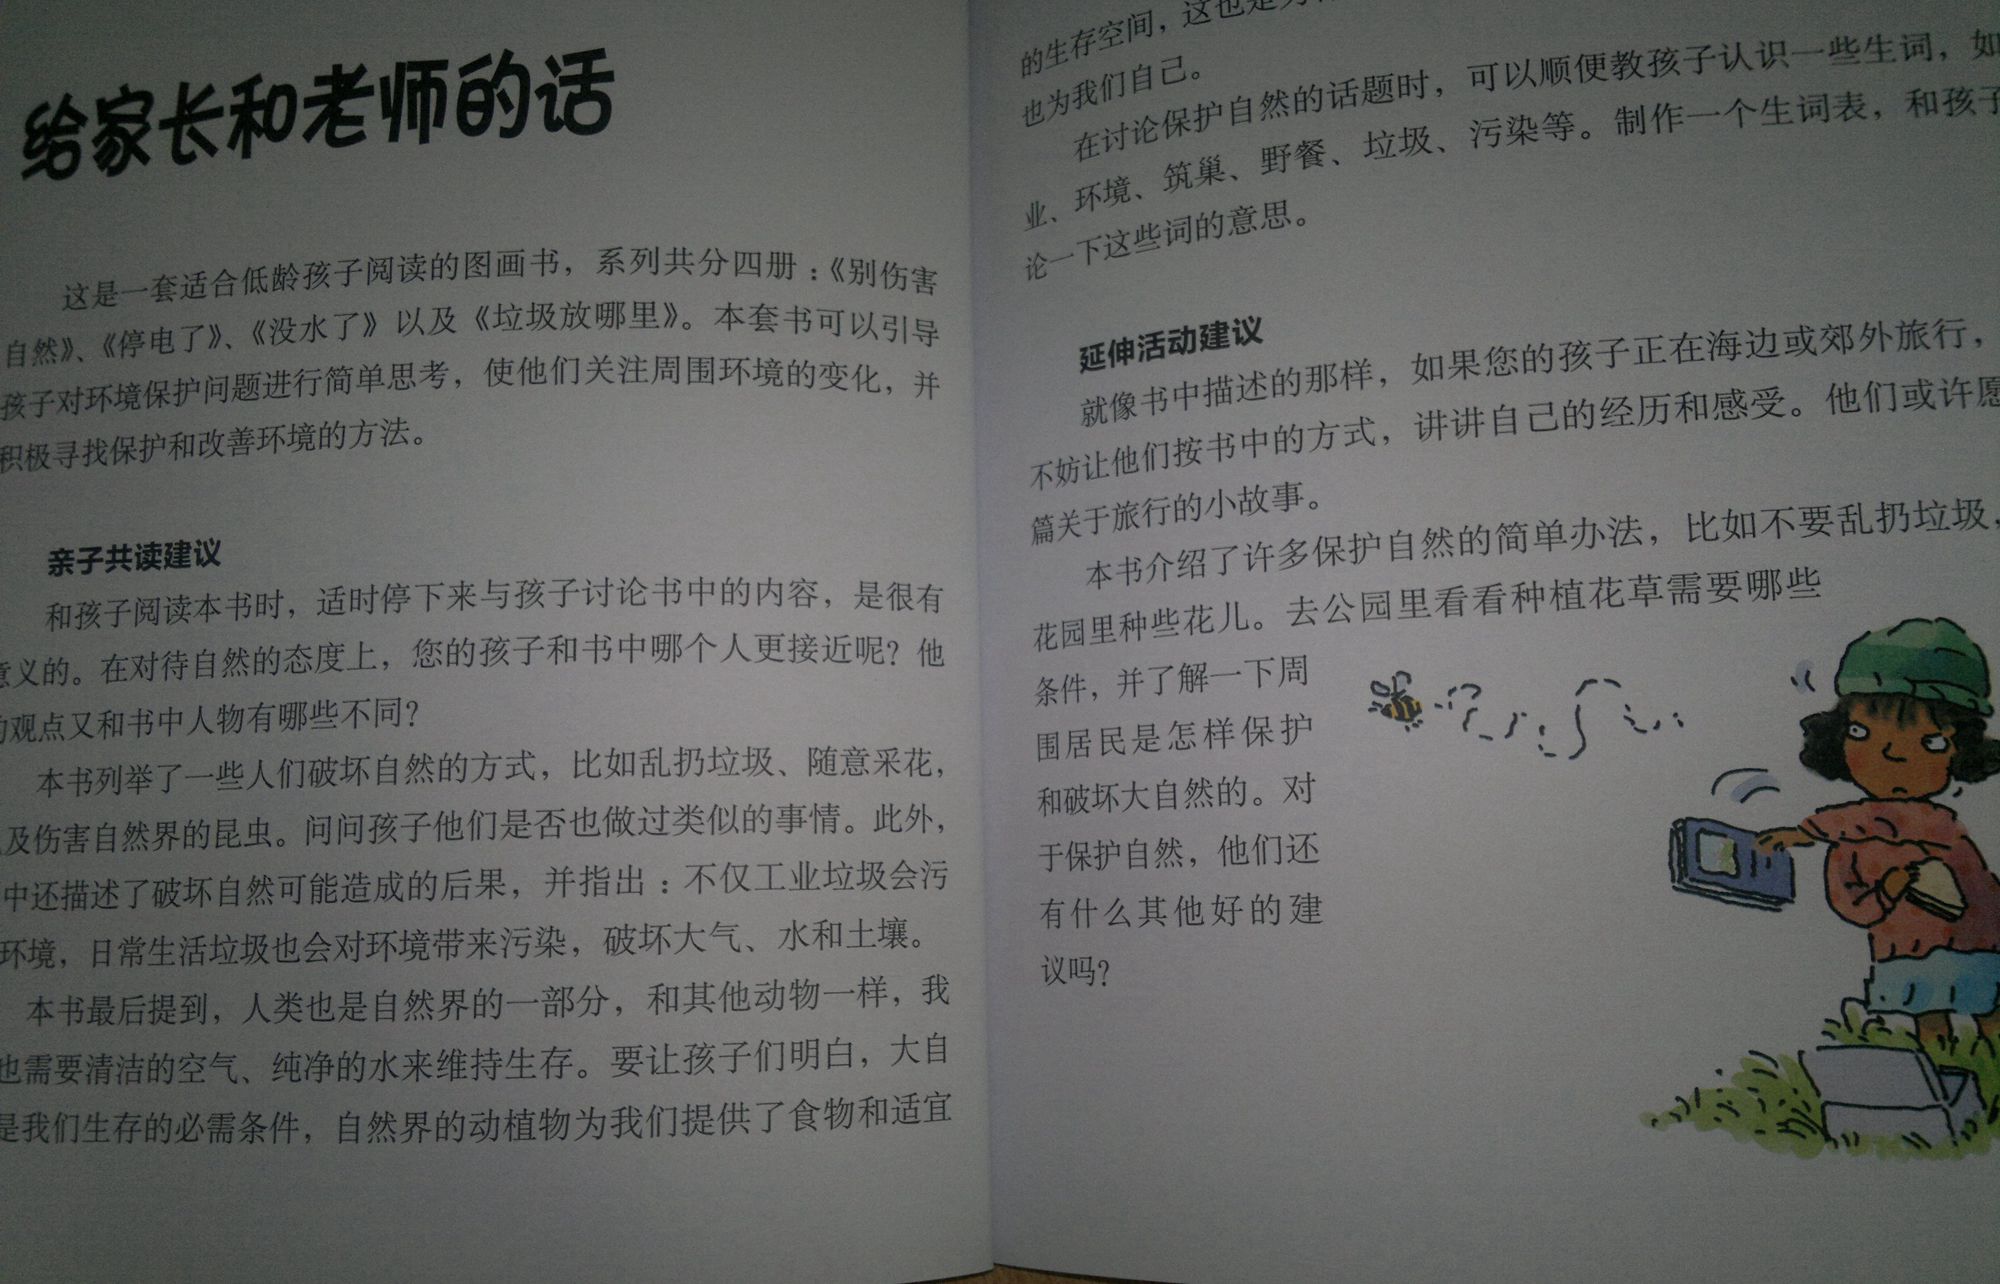 给家长和老师的话
这是一套适合低龄孩子阅读的图画书，系列共分四册：《别伤害
自然》、《停电了》、《没水了》以及《垃圾放哪里》。本套书可以引导
孩子对环境保护问题进行简单思考，使他们关注周围环境的变化，并
积极寻找保护和改善环境的方法。
亲子共读建议
和孩子阅读本书时，适时停下来与孩子讨论书中的内容，是很有
意义的。在对待自然的态度上，您的孩子和书中哪个人更接近呢？他
的观点又和书中人物有哪些不同？
本书列举了一些人们破坏自然的方式，比如乱扔垃圾、随意采花，
及伤害自然界的昆虫。问问孩子他们是否也做过类似的事情。此外，
中还描述了破坏自然可能造成的后果，并指出：不仅工业垃圾会污
环境，日常生活垃圾也会对环境带来污染，破坏大气、水和土壤。
本书最后提到，人类也是自然界的一部分，和其他动物一样，我
也需要清洁的空气、纯净的水来维持生存。要让孩子们明白，大自
是我们生存的必需条件，自然界的动植物为我们提供了食物和适宜
的生存空间，这也是
也为我们自己。
在讨论保护自然的话题时，可以顺便教孩子认识一些生词，如
业、环境、筑巢、野餐、垃圾、污染等。制作一个生词表，和孩子
论一下这些词的意思。
延伸活动建议
就像书中描述的那样，如果您的孩子正在海边或郊外旅行，
不妨让他们按书中的方式，讲讲自己的经历和感受。他们或许愿
篇关于旅行的小故事。
本书介绍了许多保护自然的简单办法，比如不要乱扔垃圾，
花园里种些花儿。去公园里看看种植花草需要哪些
条件，并了解一下周
围居民是怎样保护
和破坏大自然的。对
于保护自然，他们还
有什么其他好的建
议吗？